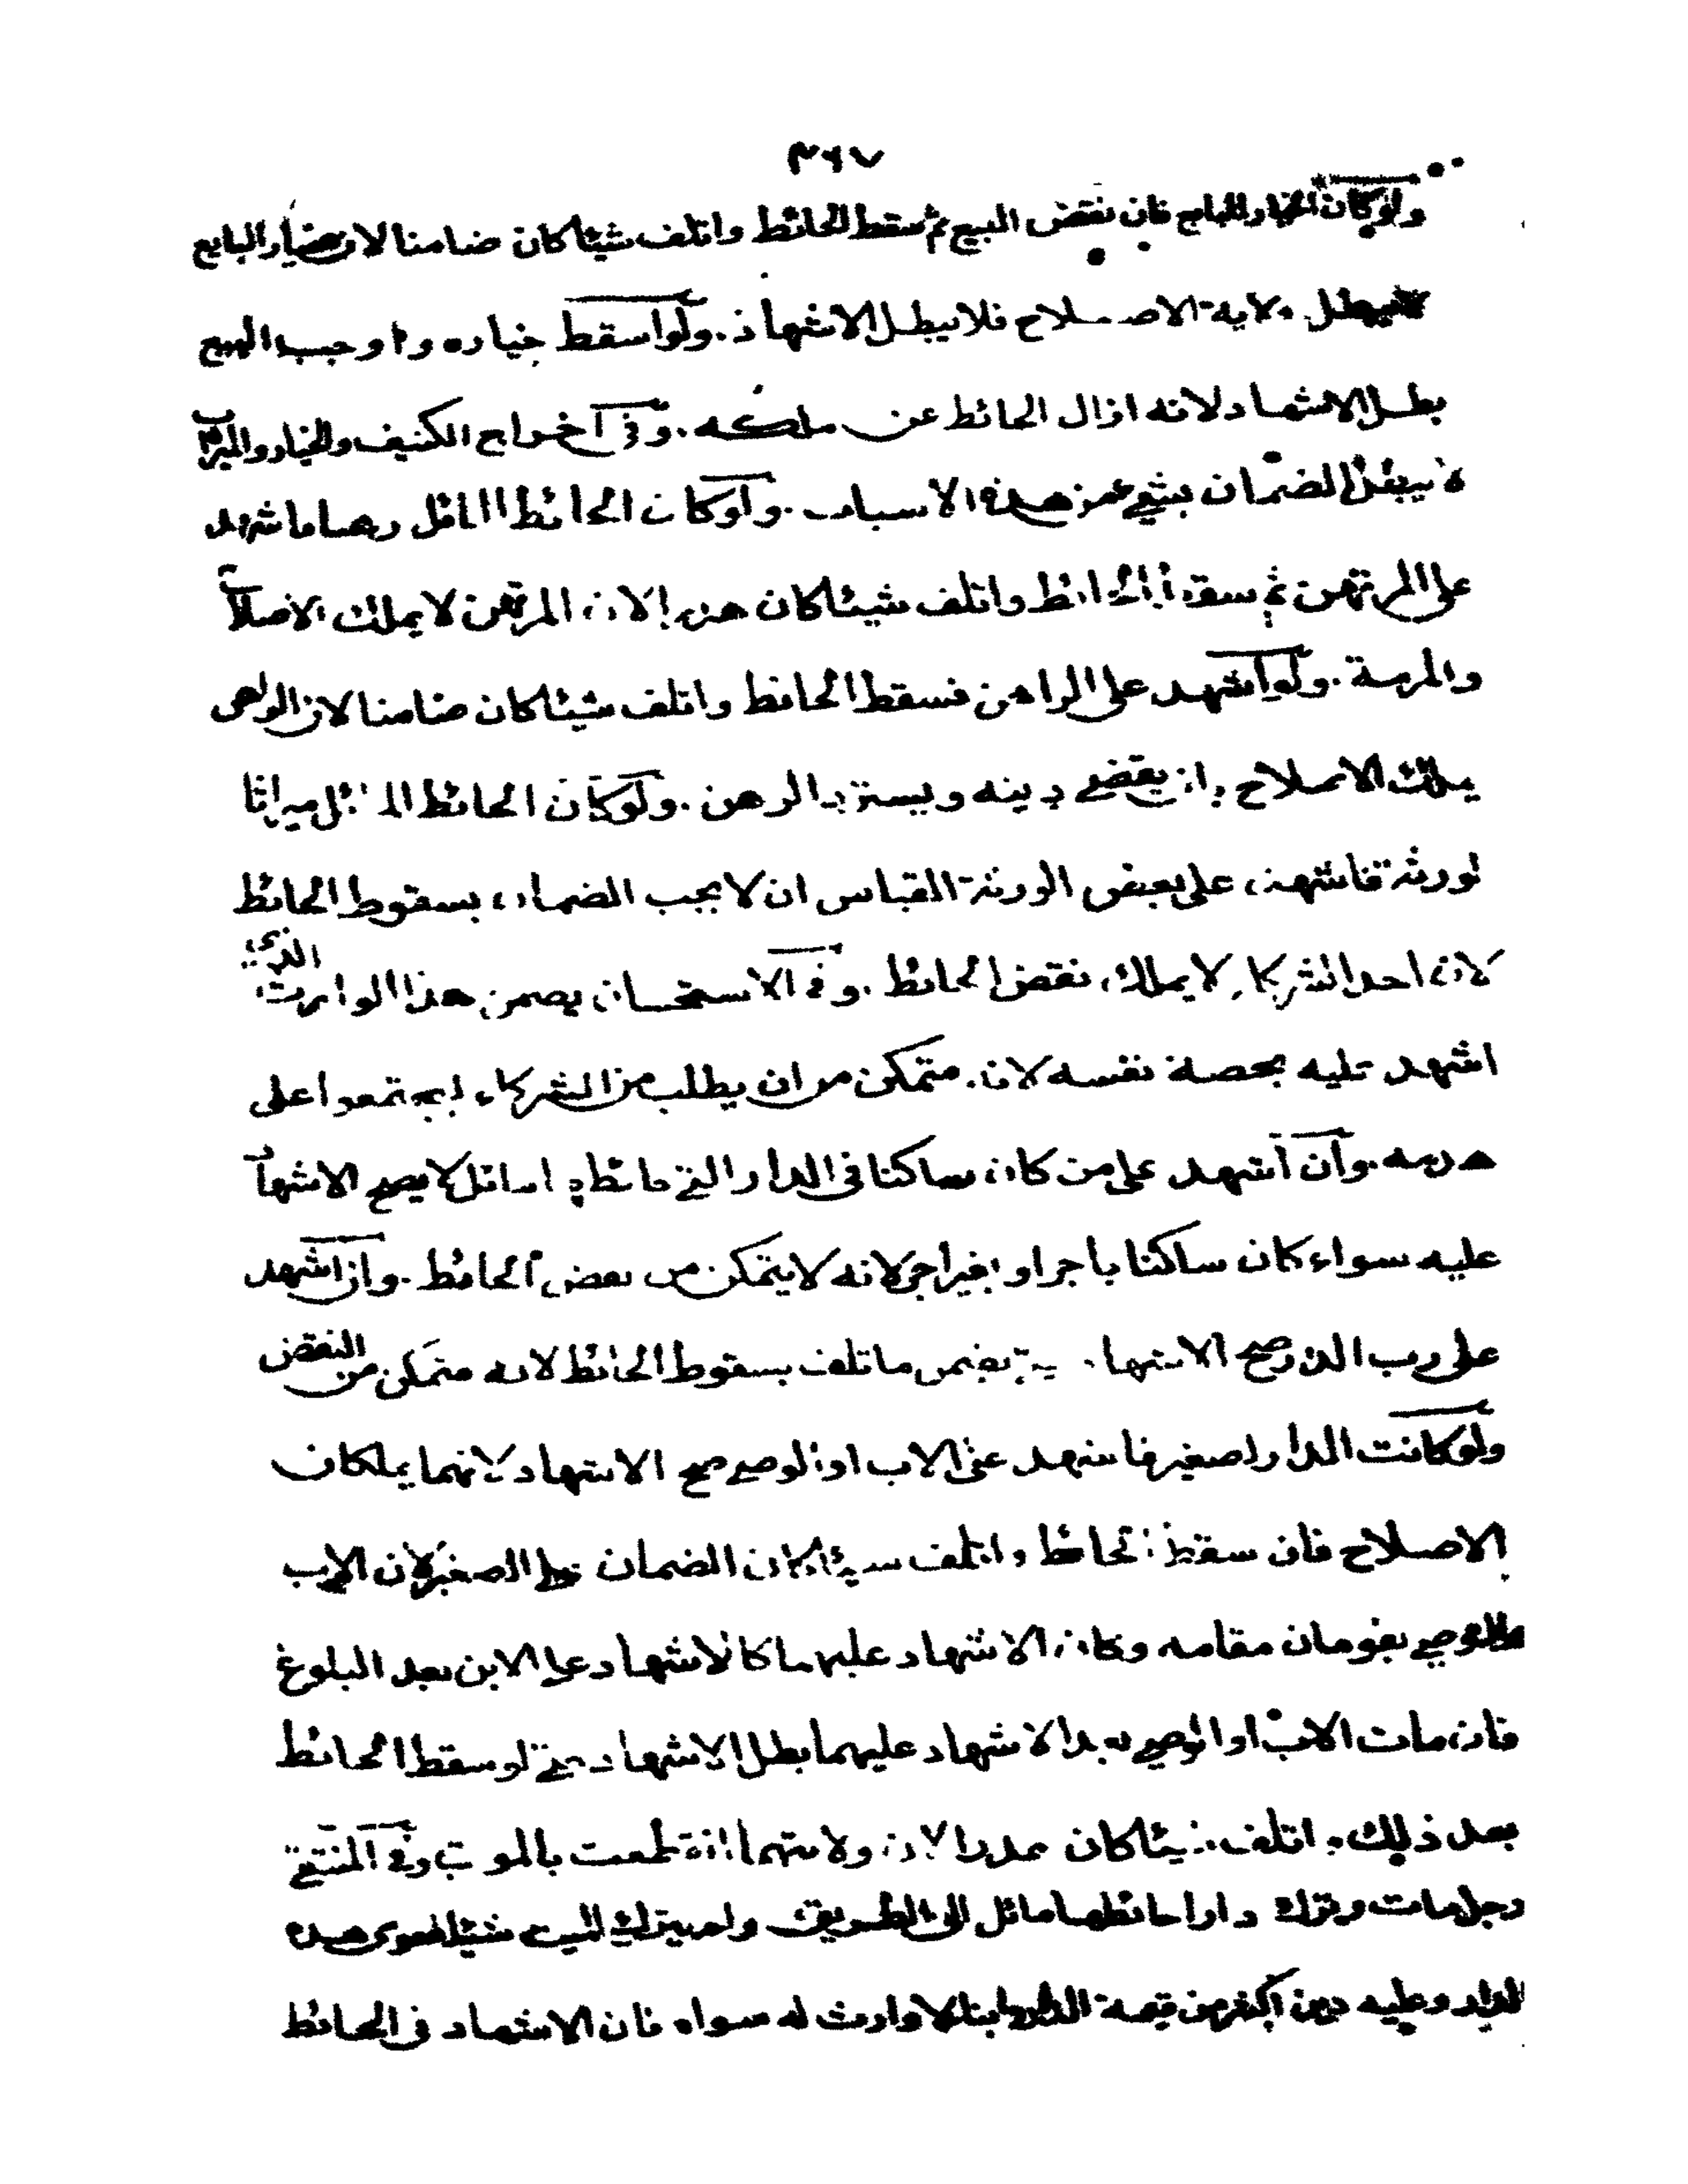 ٣٦٧
ولو كان الخيار للبايع فان نقض البيع ثم سقط الحائط واتلف شيئا كان ضامنا لان خيار البايع
لا يبطل ولاية الاصلاح فلا يبطل الاشهاد. ولو اسقط خياره واوجب البيع
بطل الاشهاد لانه ازال الحائط عن ملكه. وفى اخراج الكنيف والخيار والميزاب
لا يبطل الضمان بشئ من هذه الاسباب. ولو كان الحائط المائل رهنا فاشهد
على المرتهن ثم سقط الحائط واتلف شيئا كان هدرا لان المرتهن لا يملك الاصلاح
والمرمة. ولو اشهد على الراهن فسقط الحائط واتلف شيئا كان ضامنا لان الراهن
يملك الاصلاح بان يقضى دينه ويسترد الرهن. ولو كان الحائط المائل ميراثا
لورثة فاشهد على بعض الورثة القياس ان لا يجب الضمان بسقوط الحائط
لان احد الشركاء لا يملك نقض الحائط. وفى الاستحسان يضمن هذا الوارث الذى
اشهد عليه بحصة نفسه لانه متمكن من ان يطلب من الشركاء ليجتمعوا على
هدمه. وان اشهد على من كان ساكنا فى الدار التى حائطها مائل لا يصح الاشهاد
عليه سواء كان ساكنا باجر او بغير اجر لانه لا يتمكن من نقض الحائط. وان اشهد
على رب الدار صح الاشهاد يضمن ما تلف بسقوط الحائط لانه متمكن من النقض
ولو كانت الدار لصغير فاشهد على الاب او الوصى صح الاشهاد لانهما يملكان
الاصلاح فان سقط الحائط واتلف شيئا كان الضمان على الصغير لان الاب
والوصى يقومان مقامه وكان الاشهاد عليهما كالاشهاد على الابن بعد البلوغ
فان مات الاب او الوصى بعد الاشهاد عليهما بطل الاشهاد حتى لو سقط الحائط
بعد ذلك واتلف شيئا كان هدرا لان ولايتهما انقطعت بالموت وفى المنتقى
رجل مات وترك دارا حائطها مائل الى الطريق ولم يترك الميت شيئا سوى هذه
الدار وعليه دين اكثر من قيمة الدار وابنا لا وارث له سواه فان الاشهاد فى الحائط